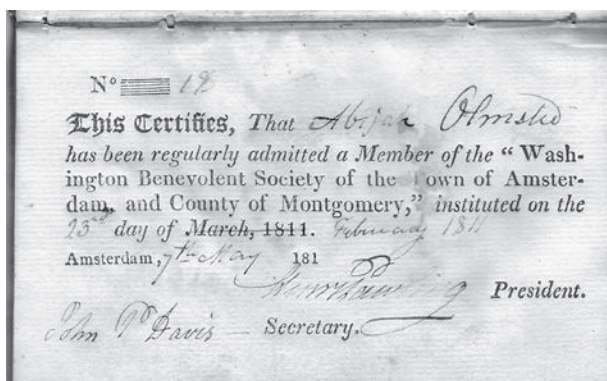 No 18
This Certifies, That Abijah Olmsted
has been regularly admitted a Member of the “ Wash-
ington Benevolent Society of the Town of Amster-
dam, and County of Montgomery,” instituted on the
23d day of March, 1811. February 1811
Amsterdam, 7th May 181
Henry Pawling President.
John P Davis — Secretary.